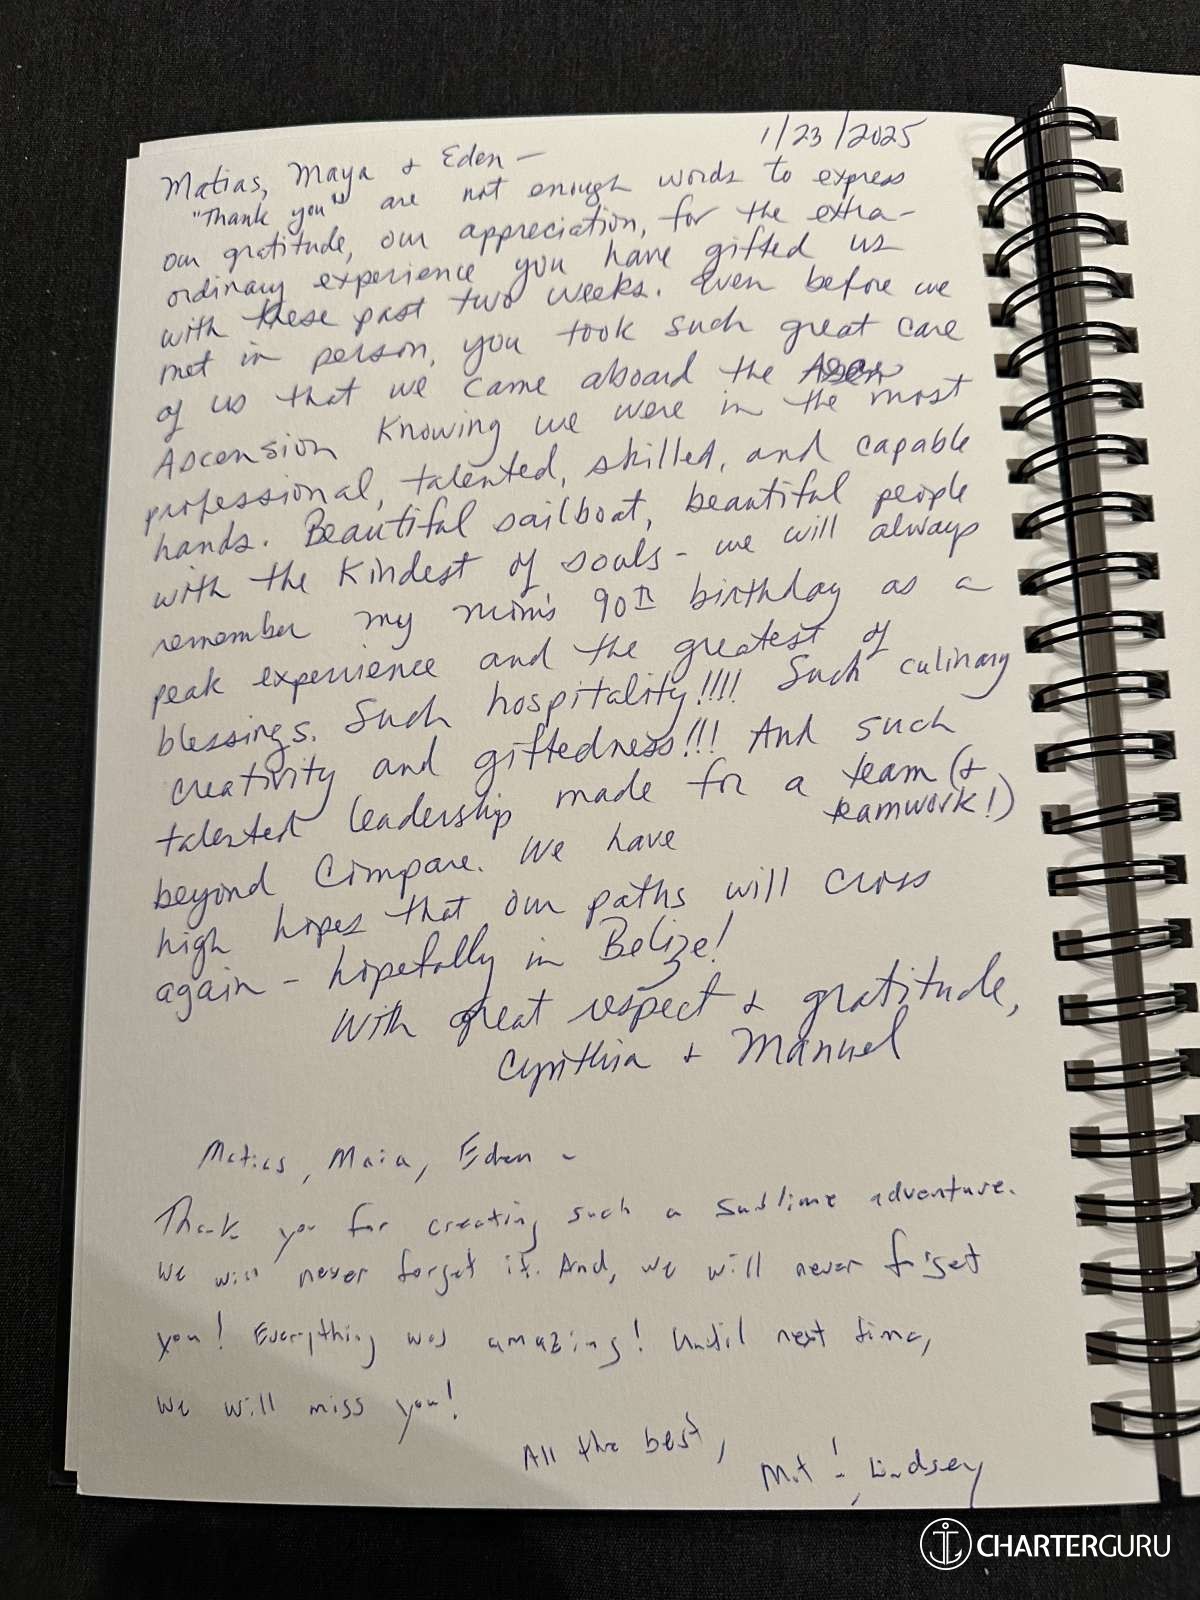 1/23/2025
Matias, Maya + Eden —
"Thank you" are not enough words to express
our gratitude, our appreciation, for the extra-
ordinary experience you have gifted us
with these past two weeks. Even before we
met in person, you took such great care
of us that we came aboard the
Ascension knowing we were in the most
professional, talented, skilled, and capable
hands. Beautiful sailboat, beautiful people
with the kindest of souls - we will always
remember my mom's 90th birthday as a
peak experience and the greatest of
blessings. Such hospitality!!!! Such culinary
creativity and giftedness!!! And such
talented leadership made for a team (+
teamwork!)
beyond compare. We have
high hopes that our paths will cross
again - hopefully in Belize!
With great respect + gratitude,
Cynthia + Manuel
Matias, Maia, Eden -
Thank you for creating such a sublime adventure.
We will never forget it. And, we will never forget
you! Everything was amazing! Until next time,
we will miss you!
All the best,
Lindsey
CHARTERGURU